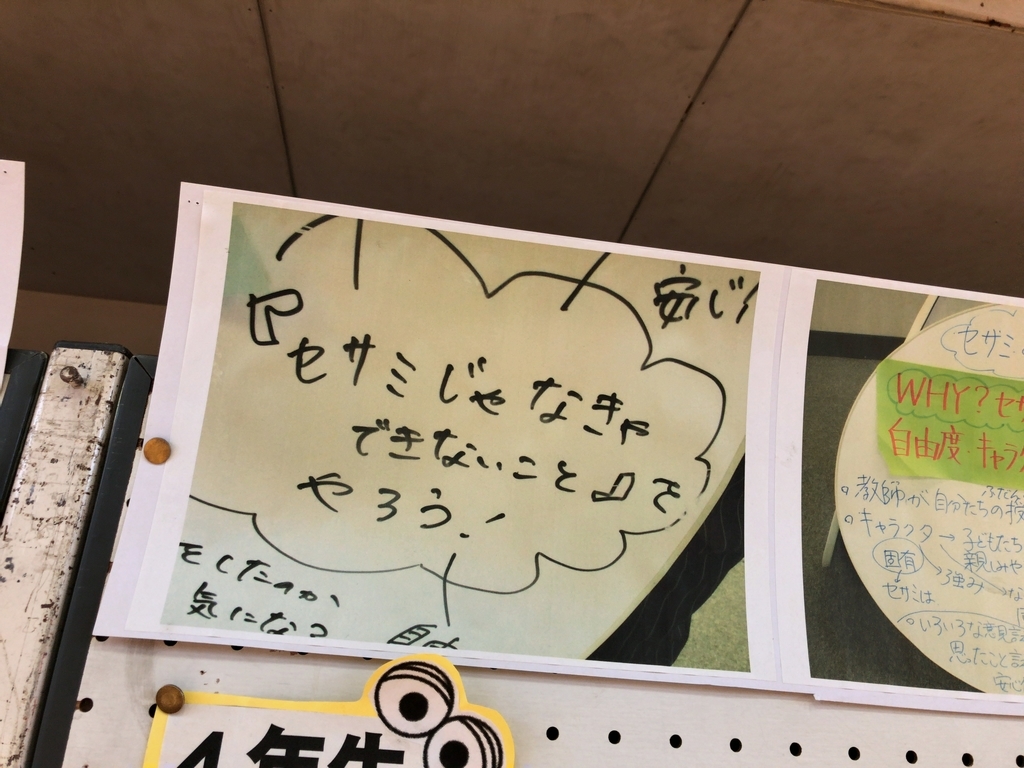 『セサミじゃなきゃ
できないこと』を
やろう！
安心
をしたのか、
気になる
自由
セサミ
WHY？セサ
自由度・キャラク
教師が自分たちの授
キャラクター→子どもたち
親しみや
固有
強み
セサミは
いろいろな意見
思ったこと
安心
4年生